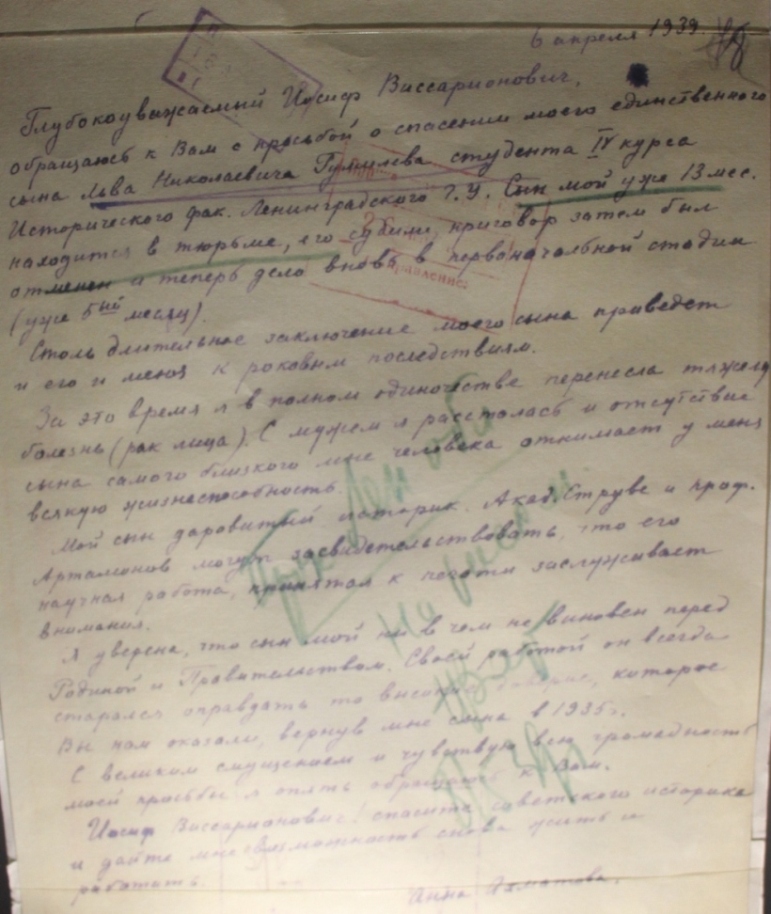 6 апреля 1939
Глубокоуважаемый Иосиф Виссарионович,
обращаюсь к Вам с просьбой о спасении моего единственного
сына Льва Николаевича Гумилева студента IV курса
Исторического фак. Ленинградского Г.У. Сын мой уже 13 мес.
находится в тюрьме, его судили, приговор затем был
отменен и теперь дело вновь в первоначальной стадии
(уже 5ый месяц).
Столь длительное заключение моего сына приведет
и его и меня к роковым последствиям.
За это время я в полном одиночестве перенесла тяжелую
болезнь (рак лица). С мужем я рассталась и отсутствие
сына самого близкого мне человека отнимает у меня
всякую жизнеспособность.
Мой сын даровитый историк. Акад. Струве и проф.
Артамонов могут засвидетельствовать, что его
научная работа, принятая к печати заслуживает
внимания.
Я уверена, что сын мой ни в чем не виновен перед
Родиной и Правительством. Своей работой он всегда
старался оправдать то высокое доверие, которое
Вы нам оказали, вернув мне сына в 1935 г.
С великим смущением и чувствуя всю громадность
моей просьбы я опять обращаюсь к Вам.
Иосиф Виссарионович! спасите советского историка
и дайте мне возможность снова жить и
работать.
Анна Ахматова.